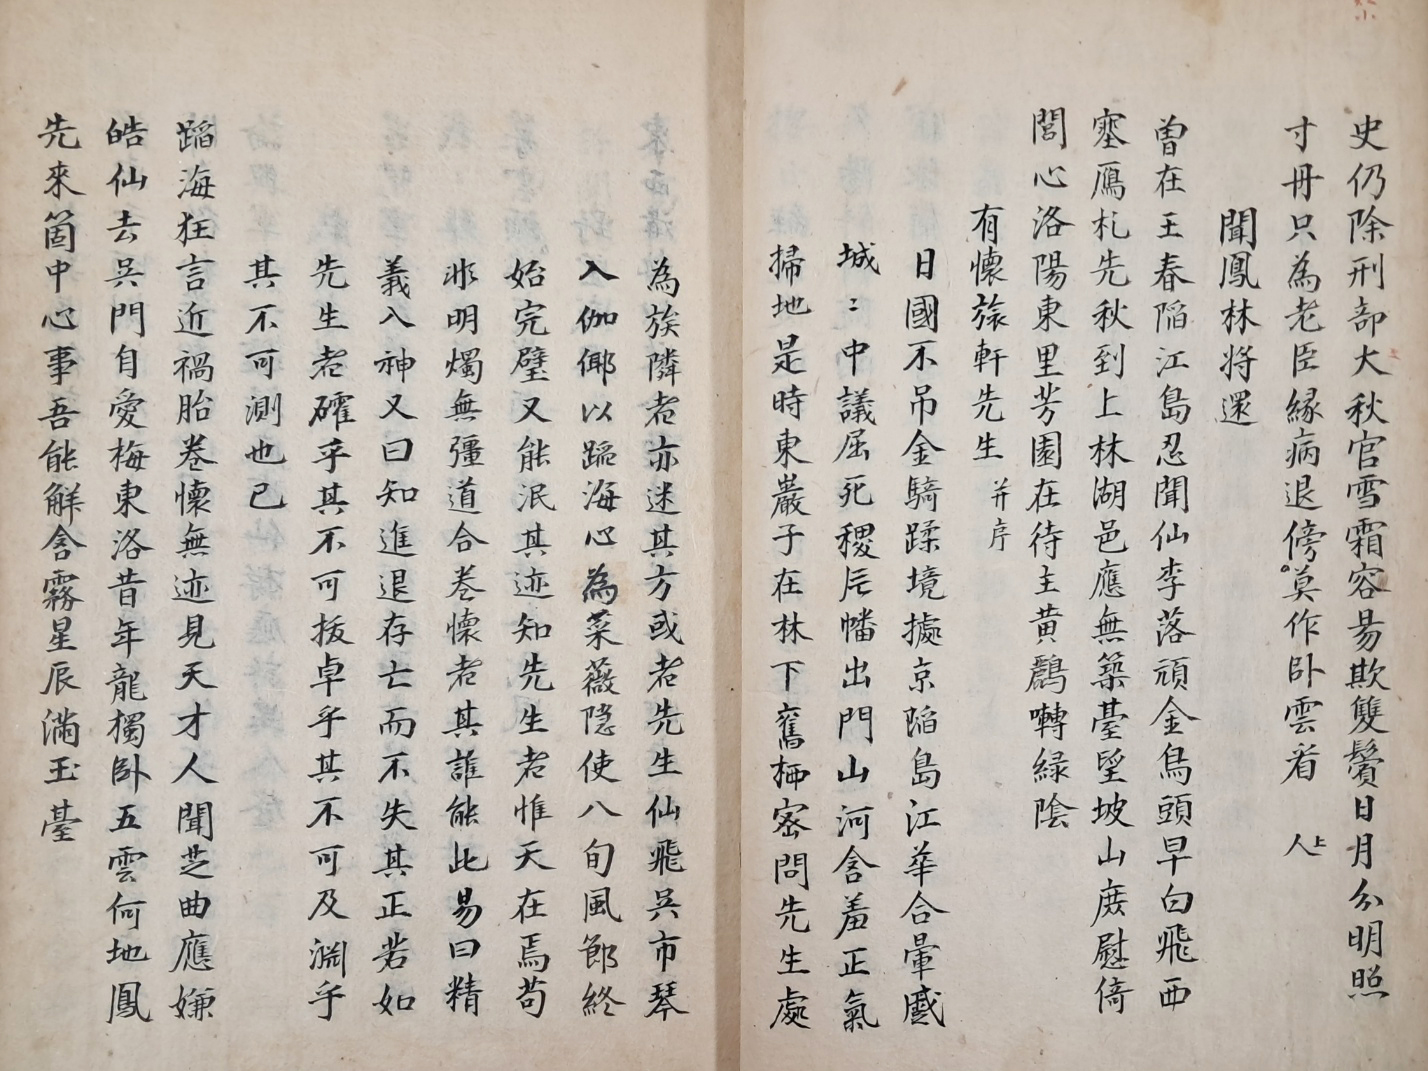 史仍除刑部大秋官雪霜容易欺雙鬢日月分明照
寸丹只為老臣緣病退傍莫作卧雲看 人上
聞鳳林将還
曾在王春陷江島忍聞仙李落頑金烏頭早白飛西
塞鴈札先秋到上林湖邑應無築臺望坡山庻慰倚
閭心洛陽東里芳園在待主黄鸝囀綠陰
有懷旅軒先生 并序
日國不吊金騎蹂境據京陷島江華合暈慼
城〻中議屈死稷㞐幡出門山河含羞正氣
掃地是時東巖子在林下舊栖宻問先生處
為族隣者亦迷其方或者先生仙飛吳市琴
入伽倻以蹈海心為菜薇隠使八旬風節終
始完璧又能泯其迹知先生者惟天在焉苟
非明燭無彊道合卷懷者其誰能此易曰精
義入神又曰知進退存亡而不失其正若如
先生者確乎其不可拔卓乎其不可及淵乎
其不可測也已
蹈海狂言近禍胎卷懷無迹見天才人聞芝曲應嫌
皓仙去吳門自愛梅東洛昔年龍獨卧五雲何地鳳
先來箇中心事吾能解含霧星辰滿玉臺